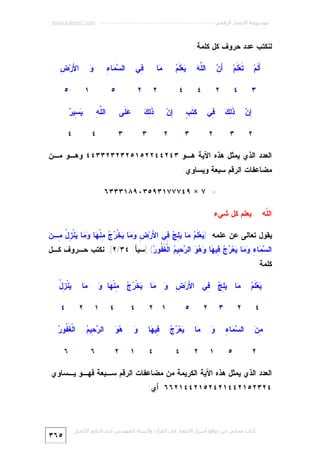 www.kaheel7.com موسوعة الإعجاز الرقمي
لنكتب عدد حروف كل كلمة
أَلَمْ تَعْلَمْ أَنَّ اللَّهَ يَعْلَمُ مَا فِي السَّمَاءِ وَ الأَرْضِ
٣ ٤ ٢ ٤ ٤ ٢ ٢ ٥ ١ ٥
إِنَّ ذَلِكَ فِي كِتَبٍ إِنَّ ذَلِكَ عَلَى اللَّهِ يَسِيرٌ
٢ ٣ ٢ ٣ ٢ ٣ ٣ ٤ ٤
العدد الذي يمثل هذه الآية هـو ٤٤٣٣٢٣٢٣٢٥١٥٢٢٤٤٢٤٣ وهـو مـن
مضاعفات الرقم سبعة ويساوي
= ٧ × ٦٣٣٣١٨٩٠٣٥٩٣١٧٧٧٤٩
الله يعلم كل شيء
يقول تعالى عن علمه (يَعْلَمُ مَا يَلِجُ فِي الأَرْضِ وَمَا يَخْرُجُ مِنْهَا وَمَا يَنْزِلُ مِـنَ
السَّمَاءِ وَمَا يَعْرُجُ فِيهَا وَهُوَ الرَّحِيمُ الْغَفُورُ) [سبأ ٣٤/٢] نكتب حـروف كـل
كلمة
يَعْلَمُ مَا يَلِجُ فِي الأَرْضِ وَ مَا يَخْرُجُ مِنْهَا وَ مَا يَنْزِلُ
٤ ٢ ٣ ٢ ٥ ١ ٢ ٤ ٤ ١ ٢ ٤
مِنَ السَّمَاءِ وَ مَا يَعْرُجُ فِيهَا وَ هُوَ الرَّحِيمُ الْغَفُورُ
٢ ٥ ١ ٢ ٤ ٤ ١ ٢ ٦ ٦
العدد الذي يمثل هذه الآية الكريمة من مضاعفات الرقم سـبعة فهـو يـساوي
٦٦٢١٤٤٢١٥٢٤٢١٤٤٢١٥٢٣٢٤ أي
كتاب مجاني من موقع أسرار الإعجاز في القرآن والسنة للمهندس عبد الدائم الكحيل
٣٦٥